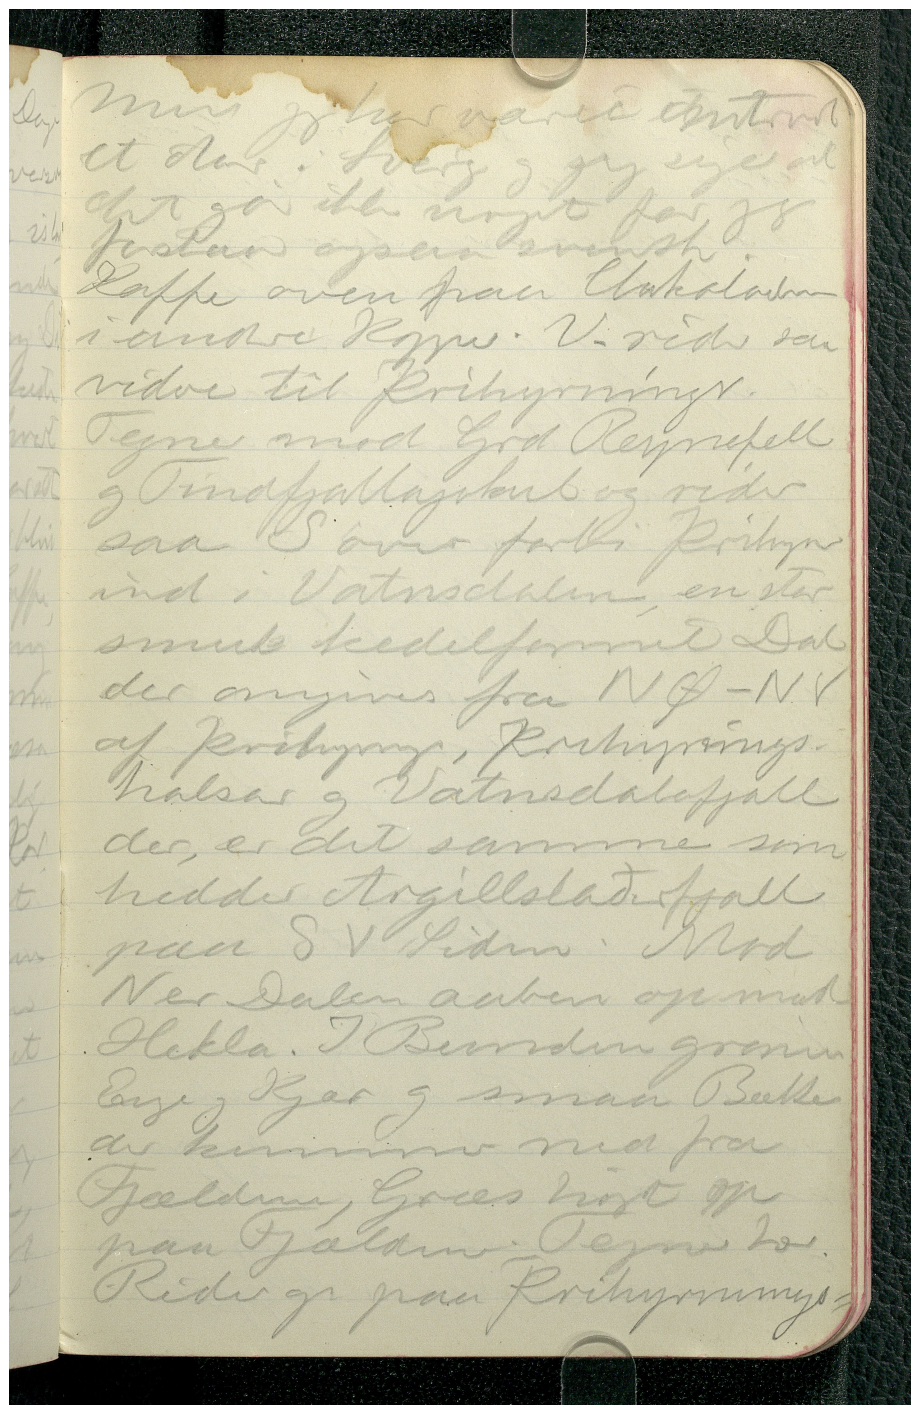 Men jeg har været
et Aar i Sverig og jeg siger at
det gör ikke noget for jeg
forstaar ogsaa svensk.
Kaffe oven paa Chokoladen
i andre Kopper. Vi rider saa
videre til Þrihyrningr.
Tegner mod Grd Reynefell
og Tindfjallajökul og rider
saa S over forbi Þrihyrn
ind i Vatnsdalen, en stor
smuk kedelformet Dal
der omgives fra NØ-NV
af Þrihyrnr, Þrihyrnings-
halsar og Vatnsdalsfjall
der, er det samme som
hedder Argillstaðafjall
paa SV Siden. Mod
N er Dalen aaben op mod
Hekla. I Bunden grønne
Enge og Kjær og smaa Bække
der kommer ned fra
Fjældene, Græs højt op
paa Fjældene. Tegner her.
Rider op paa Þrihyrnings=